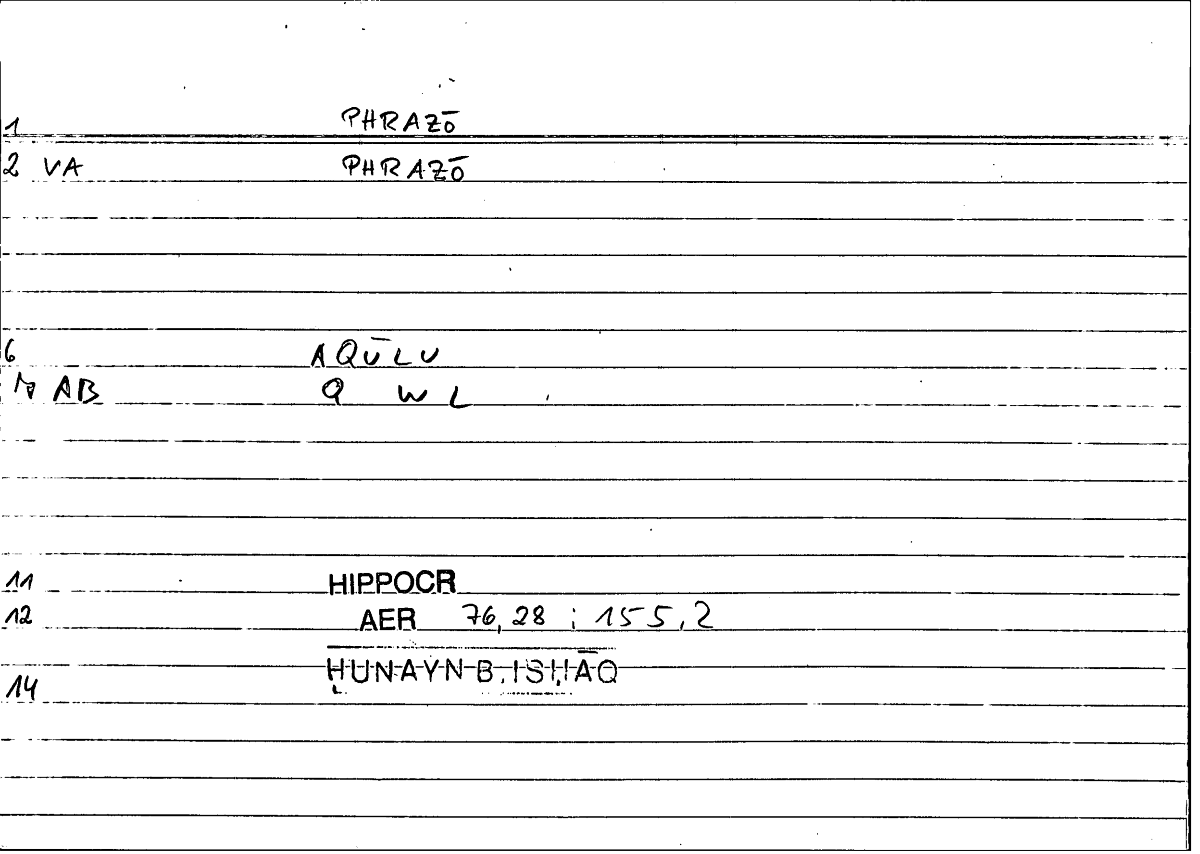 1 PHRAZŌ
2 VA PHRAZŌ
6 AQŪLU
AB Q W L
11 HIPPOCR
12 AER 76,28 ; 155,2
ḤUNAYN B. ISḤĀQ
14